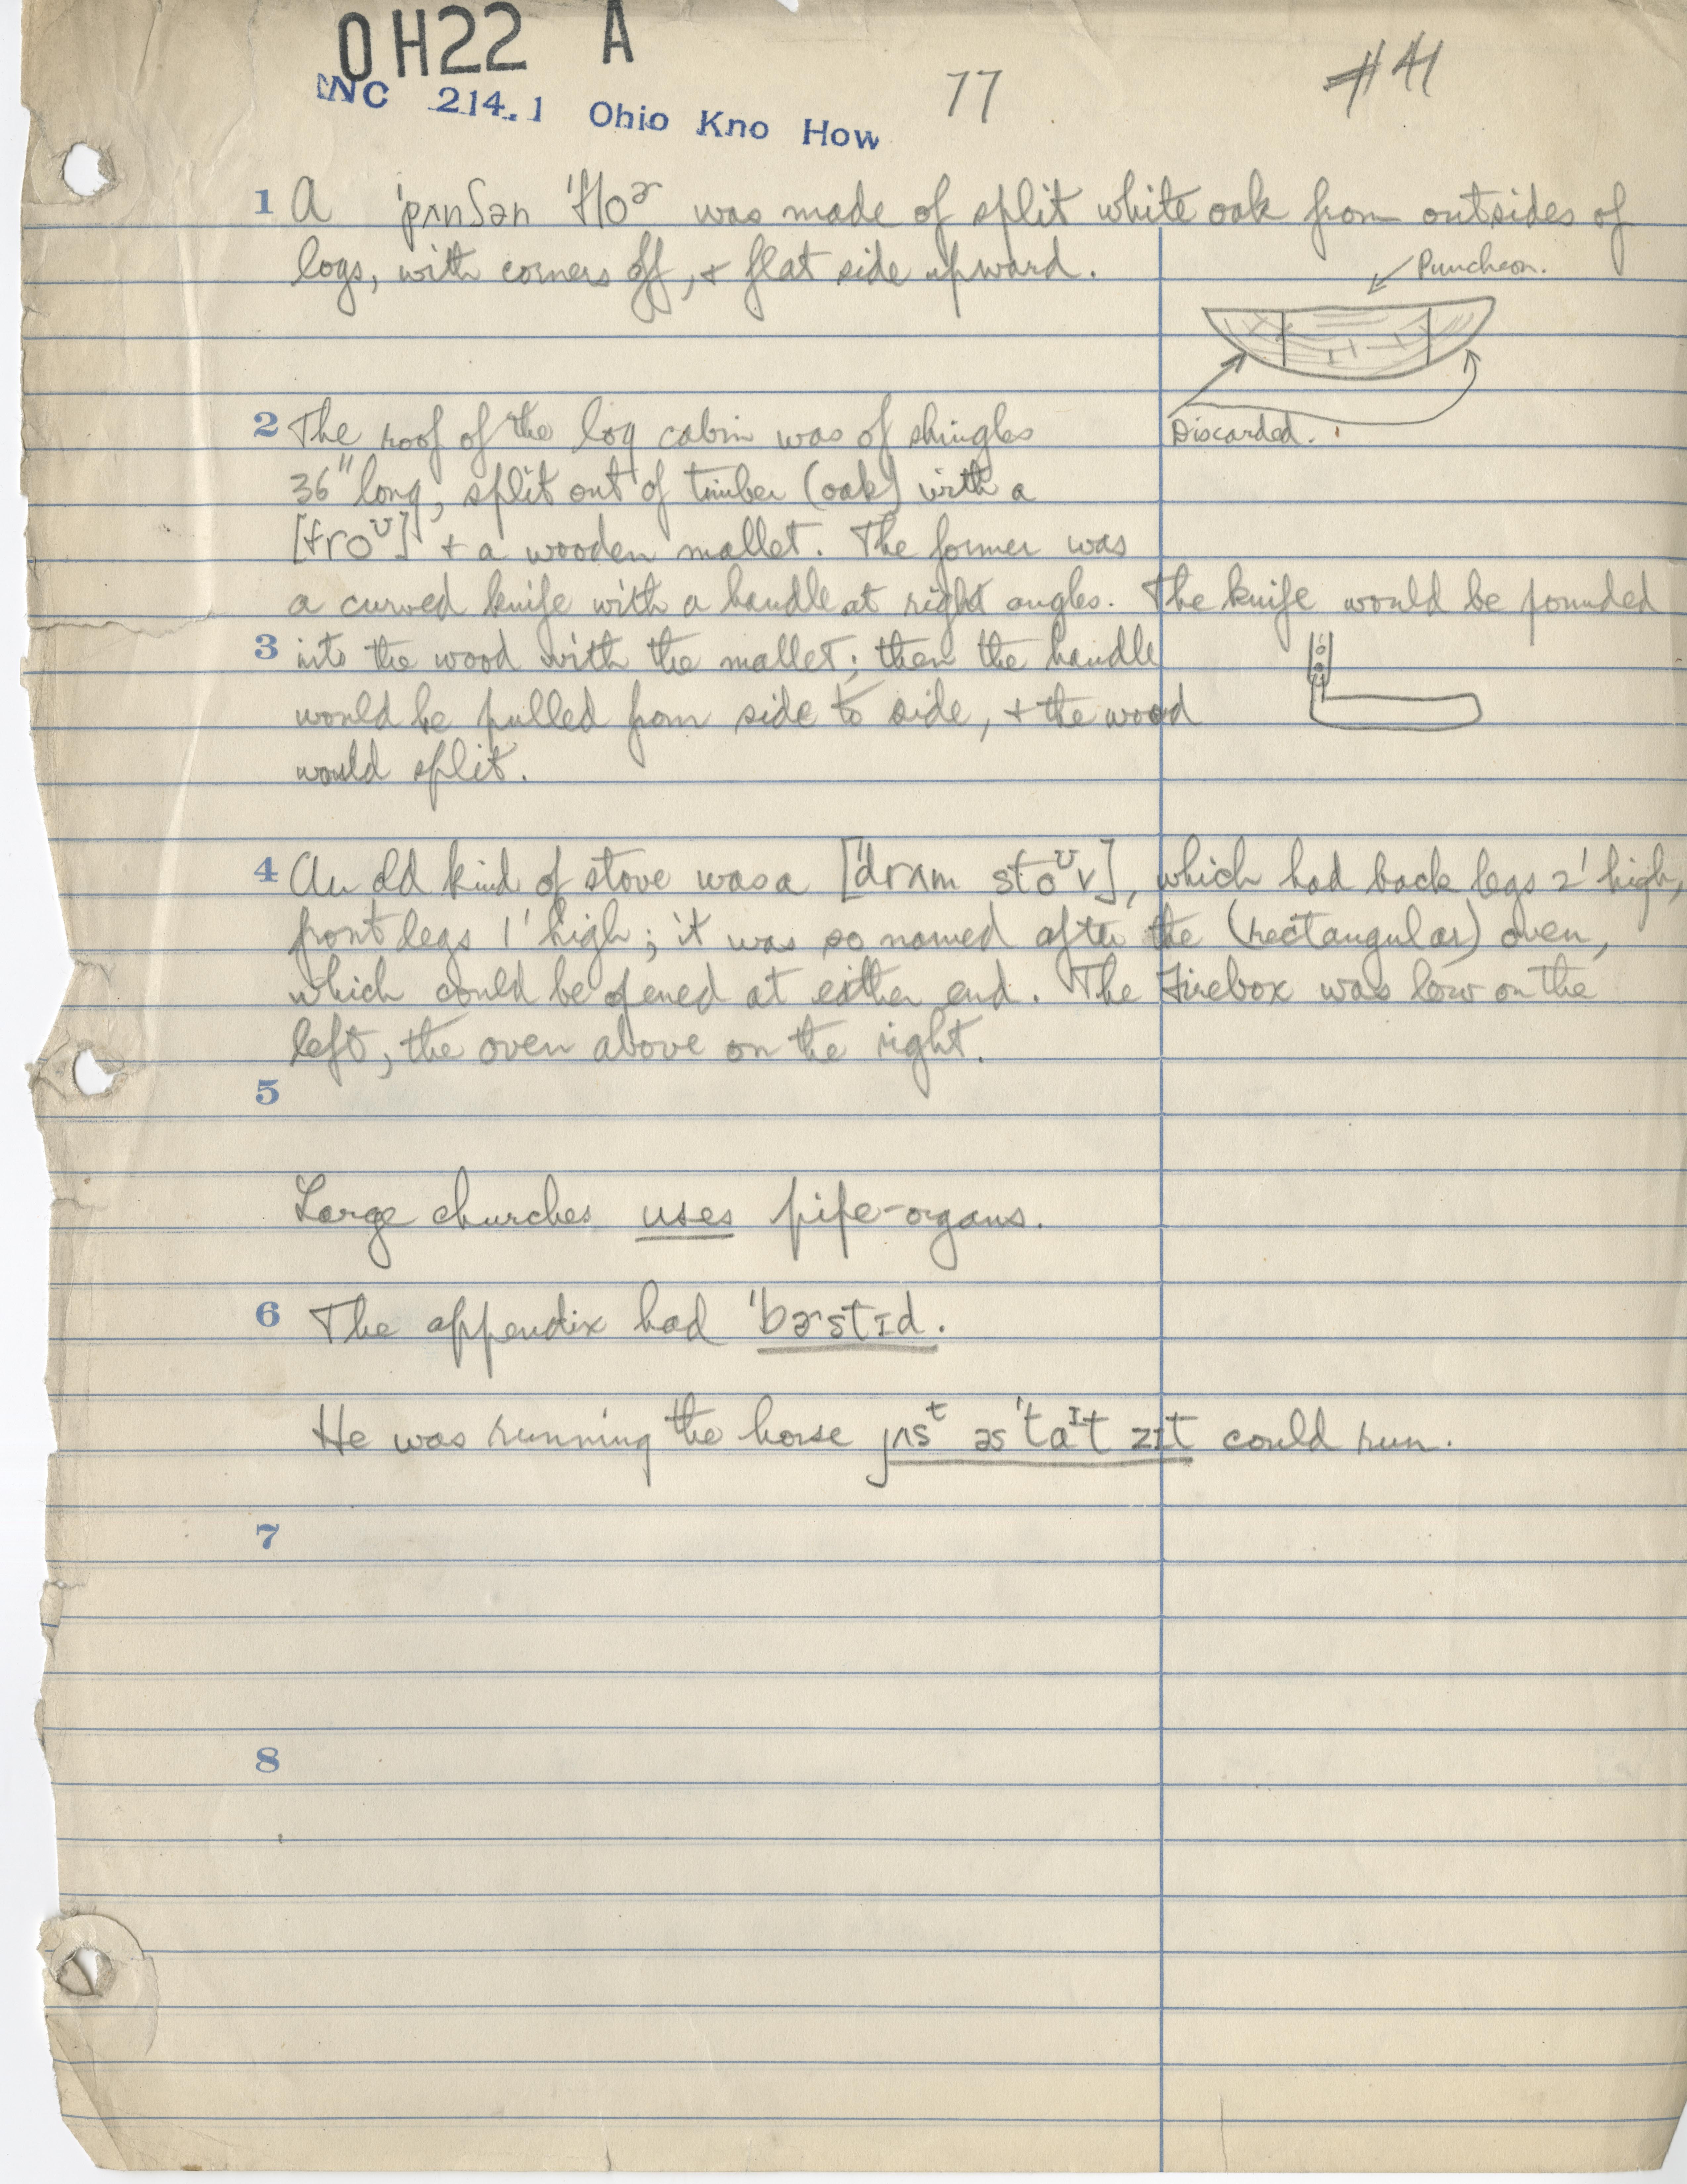 OH22 A
WC 214.1 Ohio Kno How 77 #41
1 A ˈpʌnʃən ˈfloɚ was made of split white oak from outsides of
logs, with corners off, + flat side upward.
Puncheon.
Discarded.
2 The roof of the log cabin was of shingles
36" long, split out of timber (oak) with a
[froᶷ] + a wooden mallet. The former was
a curved knife with a handle at right angles. The knife would be pounded
3 into the wood with the mallet; then the handle
would be pulled from side to side, + the wood
would split.
4 An old kind of stove was a [ˈdrʌm stoᶷv], which had back legs 2' high,
front legs 1' high; it was so named after the (rectangular) oven,
which could be opened at either end. The firebox was low on the
left, the oven above on the right.
5
Large churches uses pipe-organs.
6 The appendix had ˈbɚstɪd.
He was running the horse ȷʌsᵗ əs ˈtaᶦt zɪt could run.
7
8